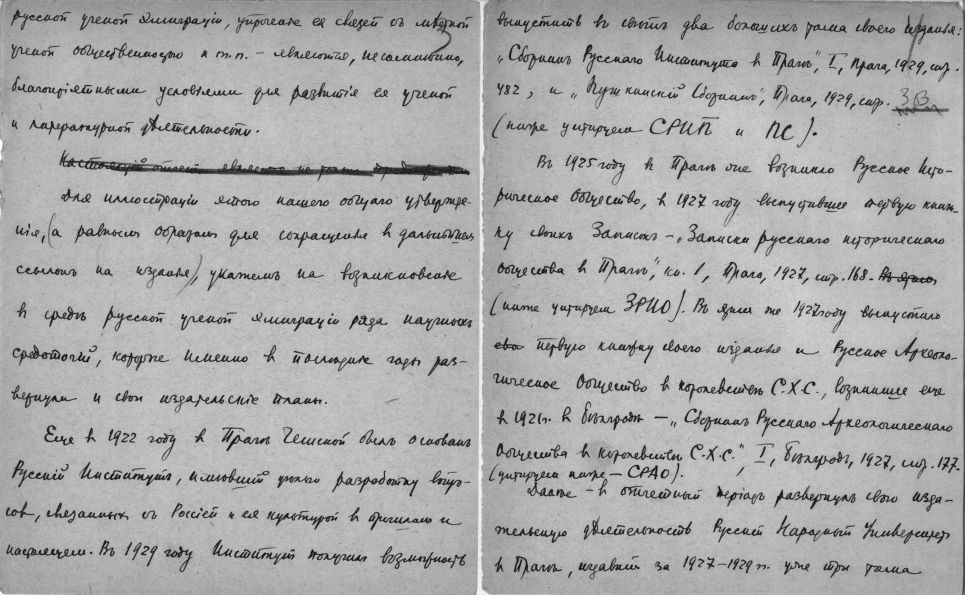 русской ученой эмиграціи, упроченіе ея связей съ мѣстной
ученой общественностью и т.п. – являются, несомнѣнно,
благопріятными условіями для развитія ея ученой
и литературной дѣятельности.
Настоящій отчет является не только
Для иллюстраціи этого нашего общаго утвержде-
нія, (а равнымъ образомъ для сокращенія в дальнѣйшем
ссылокъ на изданія), укажемъ на возникновеніе
в средѣ русской ученой эмиграціи ряда научныхъ
средоточій, которые именно в послѣдніе годы раз-
вернули и свои издательскіе планы.
Еще в 1922 году в Прагѣ Чешской былъ основанъ
Русскій Институтъ, имѣвшій цѣлью разработку вопро-
совъ, связанныхъ съ Россіей и ея культурой в прошломъ и
настоящем. Въ 1929 году Институт получилъ возможность
выпустить в свѣтъ два большихъ тома своего изданія:
„Сборникъ Русскаго Института в Прагѣ", I, Прага, 1929, стр.
482, и „Пушкинскій Сборникъ", Прага, 1929, стр.
(ниже цитируемъ СРИП и ПС).
Въ 1925 году в Прагѣ же возникло Русское Исто-
рическое Общество, в 1927 году выпустившее первую книж-
ку своихъ Записокъ – „Записки русскаго историческаго
общества в Прагѣ", кн. 1, Прага, 1927, стр. 168.
(ниже цитируем ЗРИО). Въ этом же 1927 году выпустило
первую книжку своего изданія и Русское Археоло-
гическое Общество в королевствѣ С.Х.С., возникшее еще
в 1921 г. в Бѣлградѣ – „Сборникъ Русскаго Археологическаго
Общества в королевствѣ С.Х.С.", I, Бѣлградъ, 1927, стр. 177.
(цитируем ниже – СРАО).
Далѣе – в отчетный періодъ развернулъ свою изда-
тельскую дѣятельность Русскій Народный Университет
в Прагѣ, издавшій за 1927–1929 гг. уже три тома